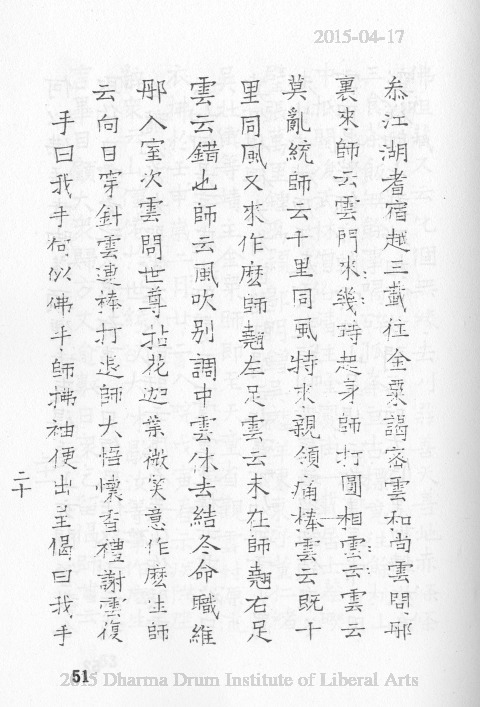 2015-04-17
叅江湖耆宿越三載往金粟謁容雲和尚雲問那
裏來師云雲門來幾時起身師打圓相雲云雲云
莫亂統師云千里同風特來親領痛棒雲云既十
里同風又來作麽師翹左足雲云未在師翹右足
雲云錯也師云風吹別調中雲休去結冬命職維
那入室次雲問世尊拈花迦葉微笑意作麽生師
云向日穿針雲連棒打退師大悟懷香禮謝雲復
手曰我手何似佛手師拂袖便出呈偈曰我手
二十
51
2015 Dharma Drum Institute of Liberal Arts